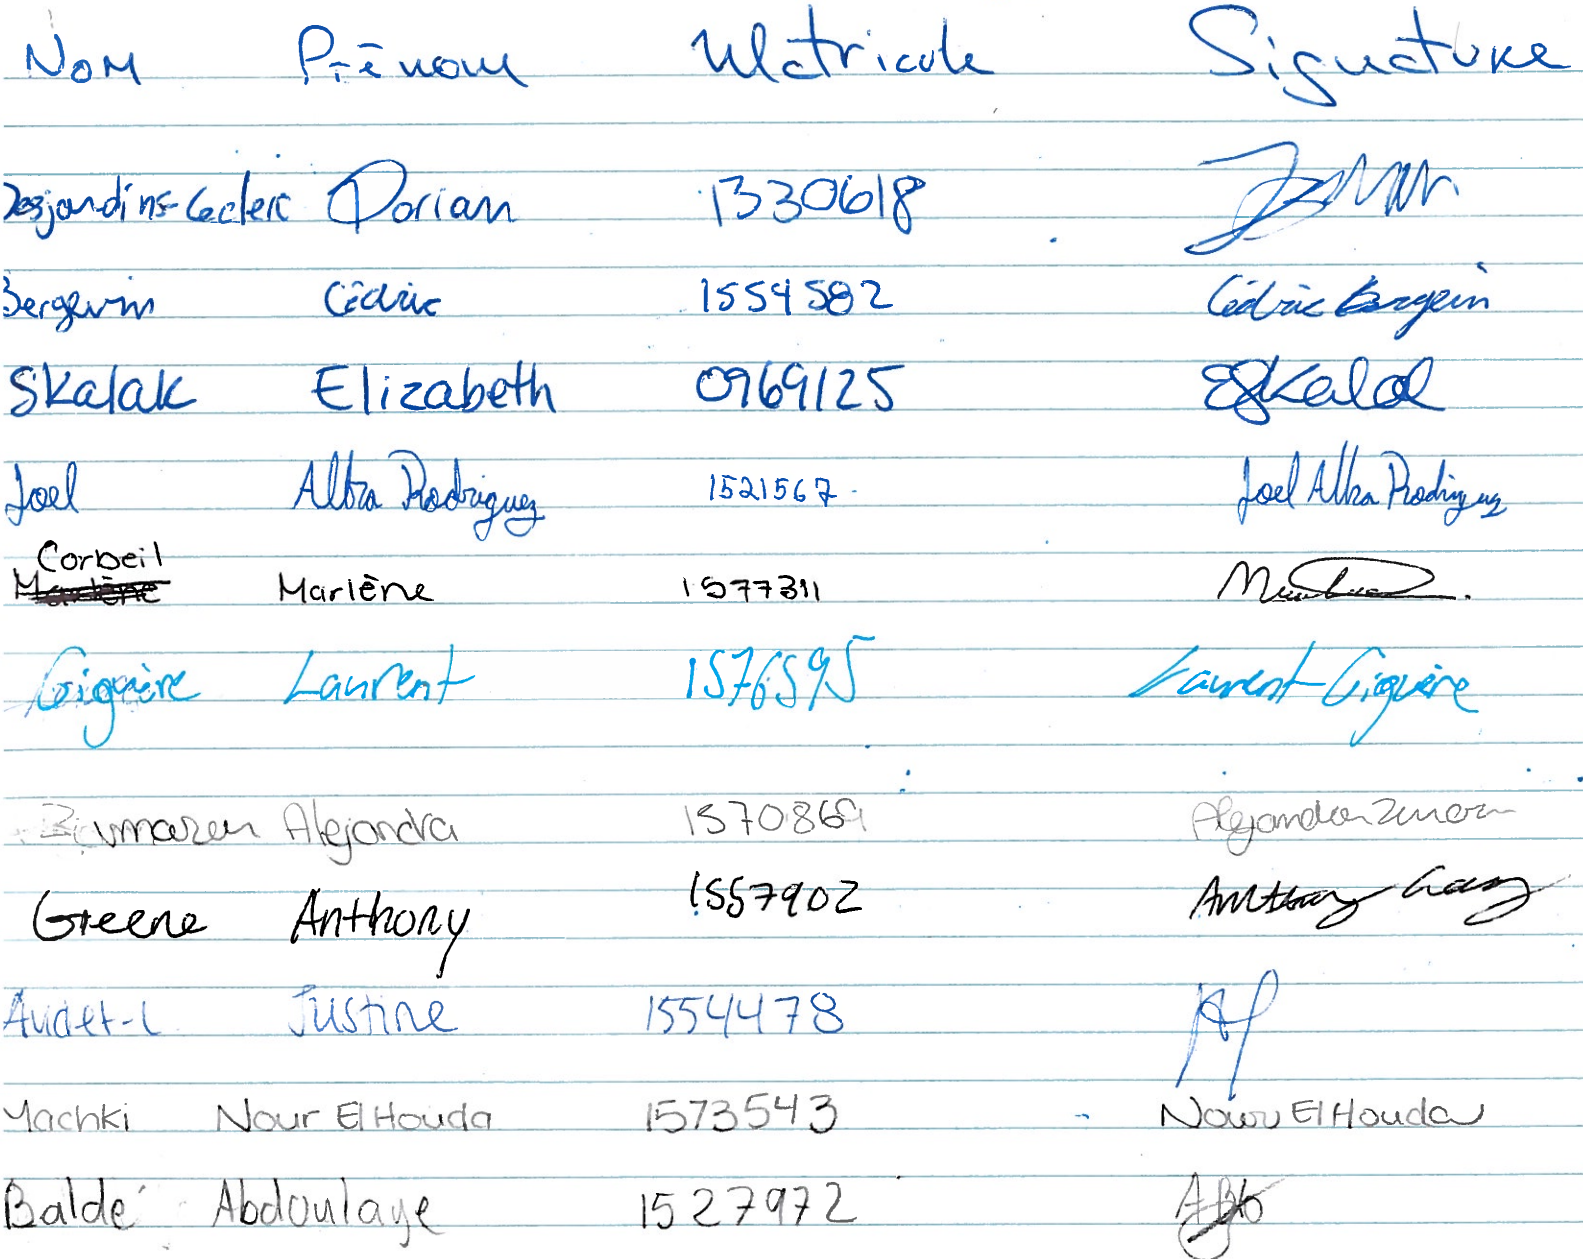 Nom Prénom Matricule Signature
Desjardins-Leclerc Dorian 1330618
Bergevin Cédric 1554582 Cédric Bergevin
Skalak Elizabeth 0969125 ESkalak
Joel Alba Rodriguez 1521567 Joel Alba Rodriguez
Corbeil
Marlène Marlène 1577311
Giguère Laurent 1576595 Laurent Giguère
Alejandra 1570869 Alejandra
Greene Anthony 1557902 Anthony
Audet-L Justine 1554478
Yachki Nour El Houda 1573543 Nour El Houda
Baldé Abdoulaye 1527972